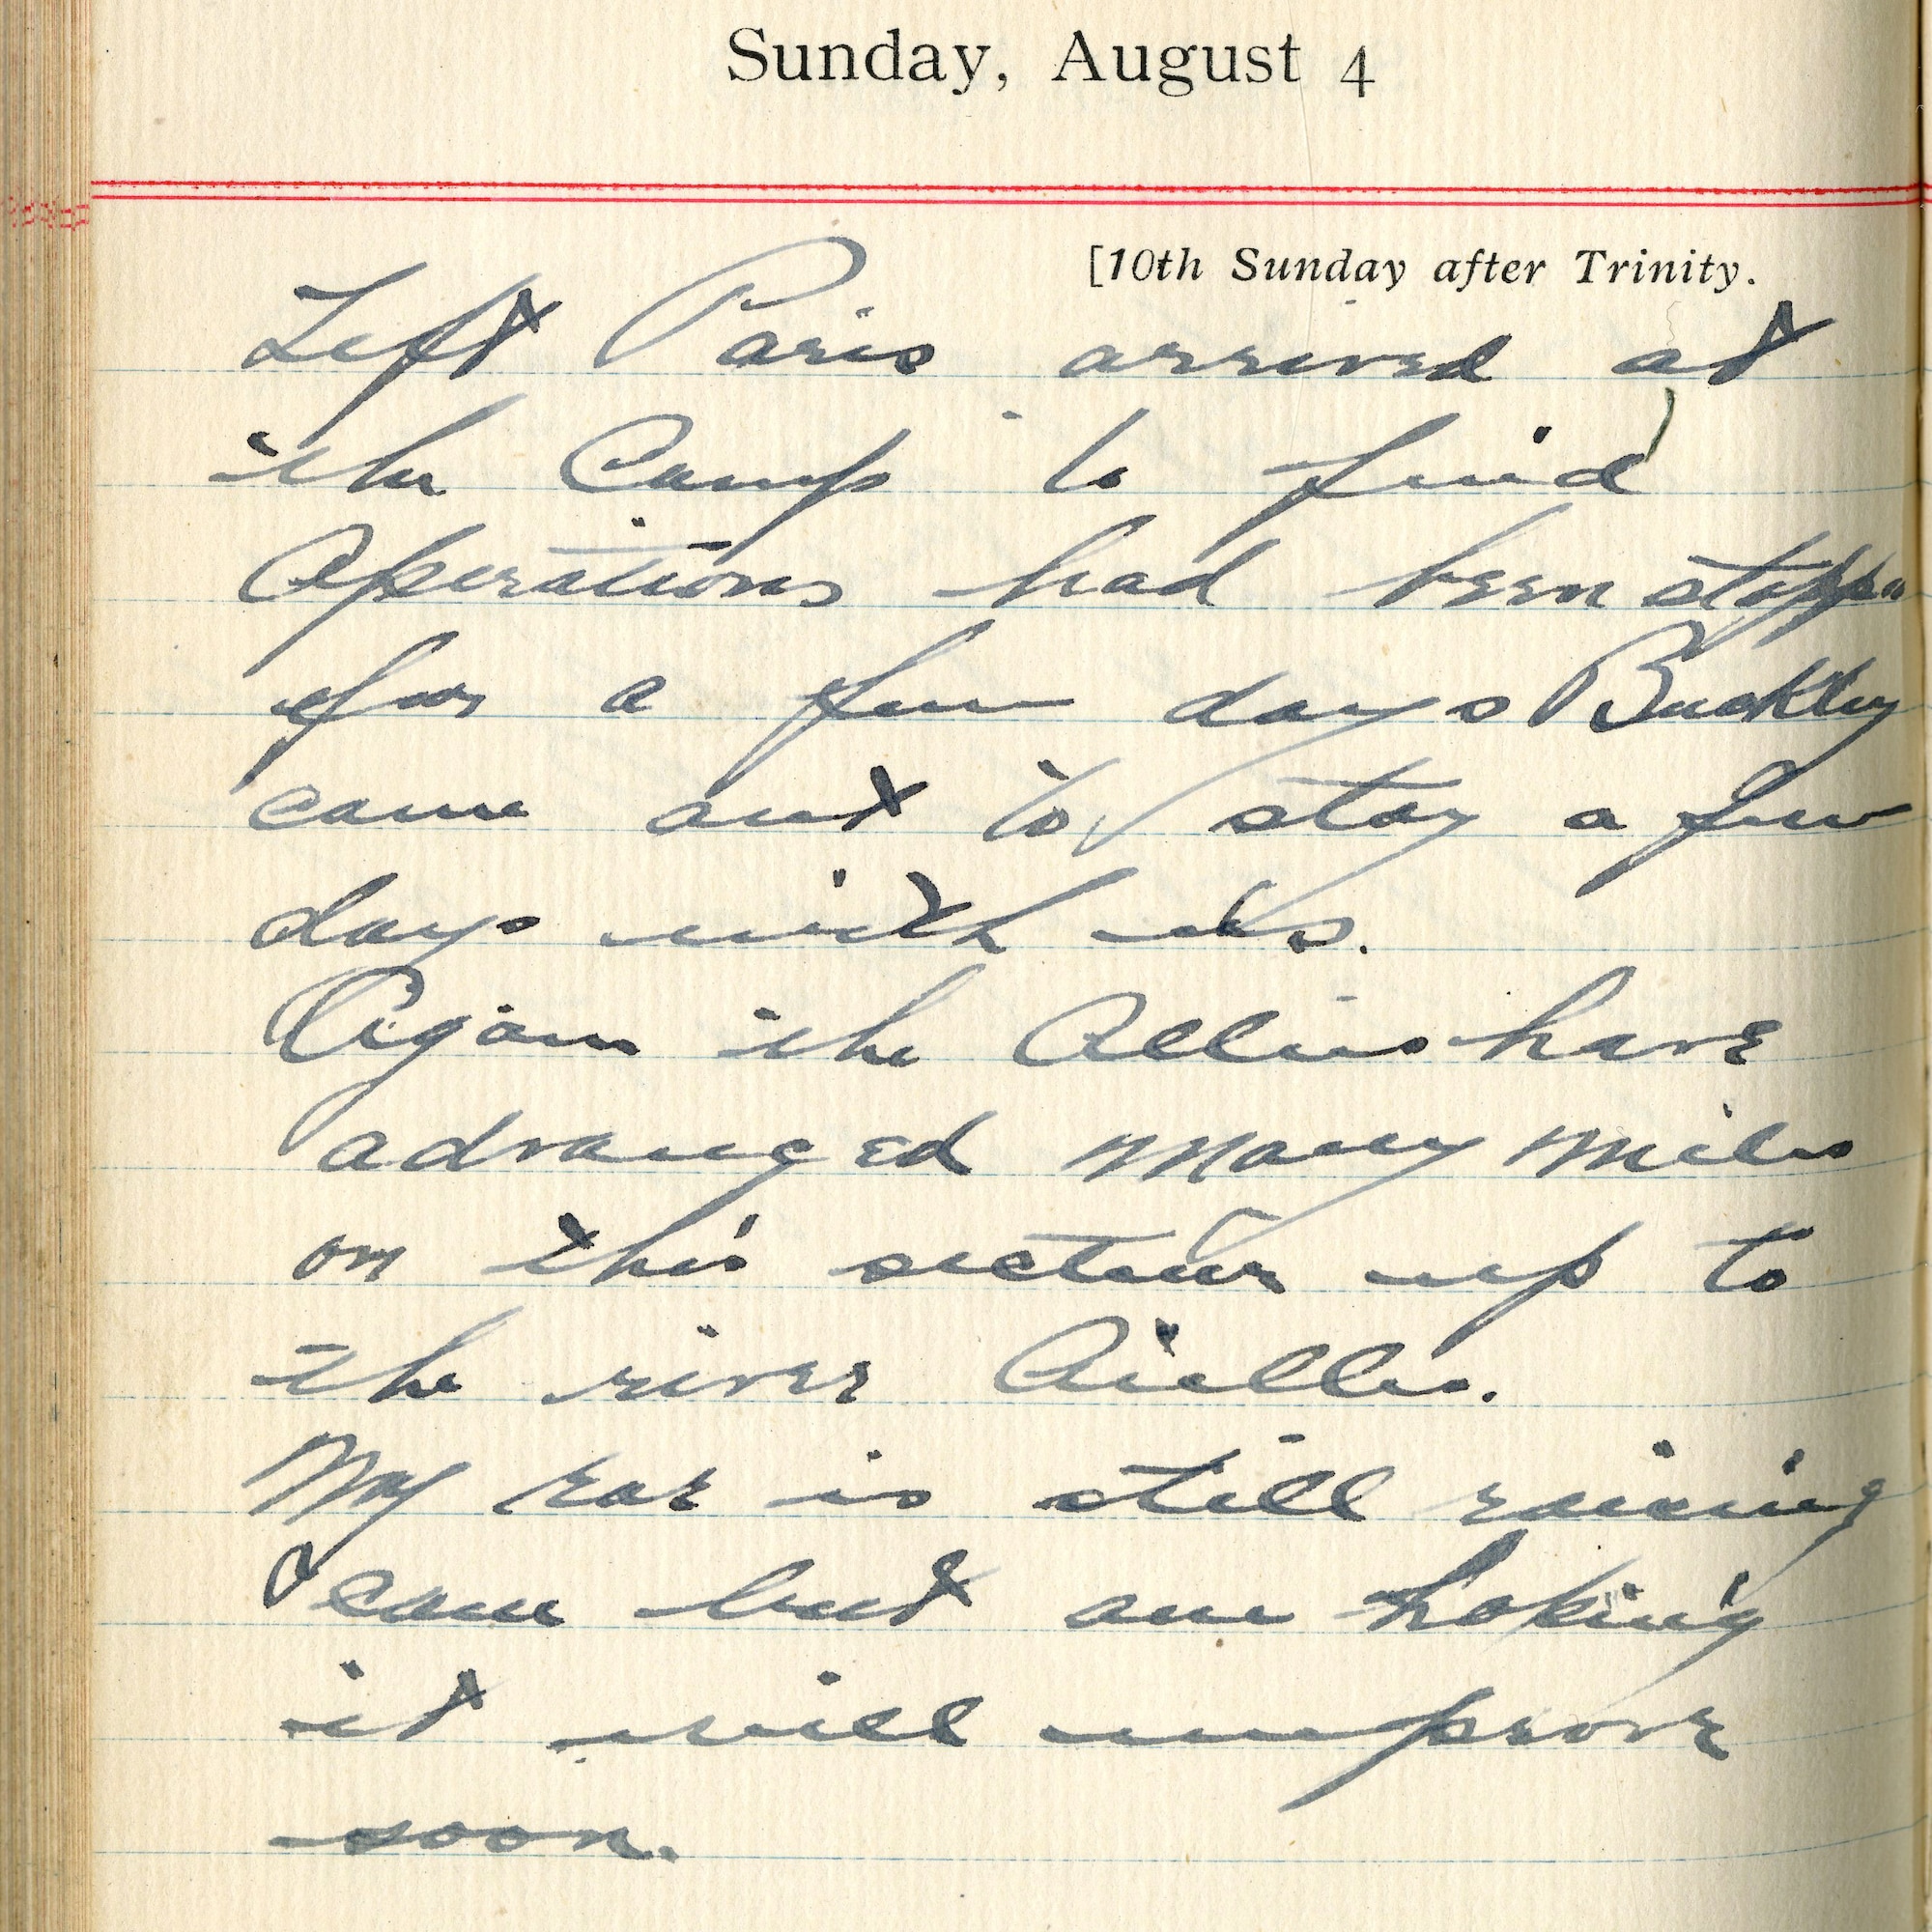 Sunday, August 4
[10th Sunday after Trinity.
Left Paris arrived at
the Camp to find
Operations had been stopp
for a few days Buckley
came out to stay a few
days with us.
Again the Allies have
advanced many miles
on this secteur up to
the river
My ear is still
& but am hoping
it will improve
soon.